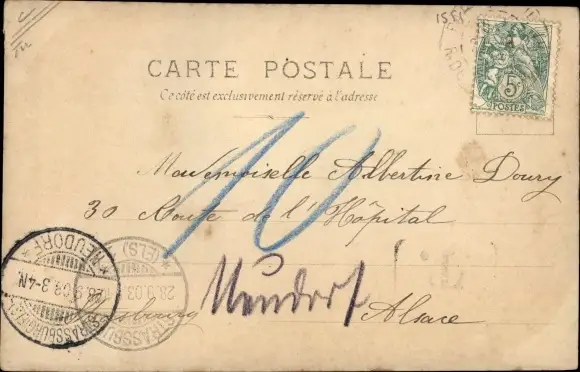 CARTE POSTALE
Ce côté est exclusivement réservé à l'adresse
5c
POSTES
10
Mademoiselle Albertine Doury
30 Route de l'Hôpital
Neudorf
Strasbourg Alsace
NEUDORF
28.9.03 3-4N.
STRASSBURG
(ELS)
28.9.03
STRASSBURG